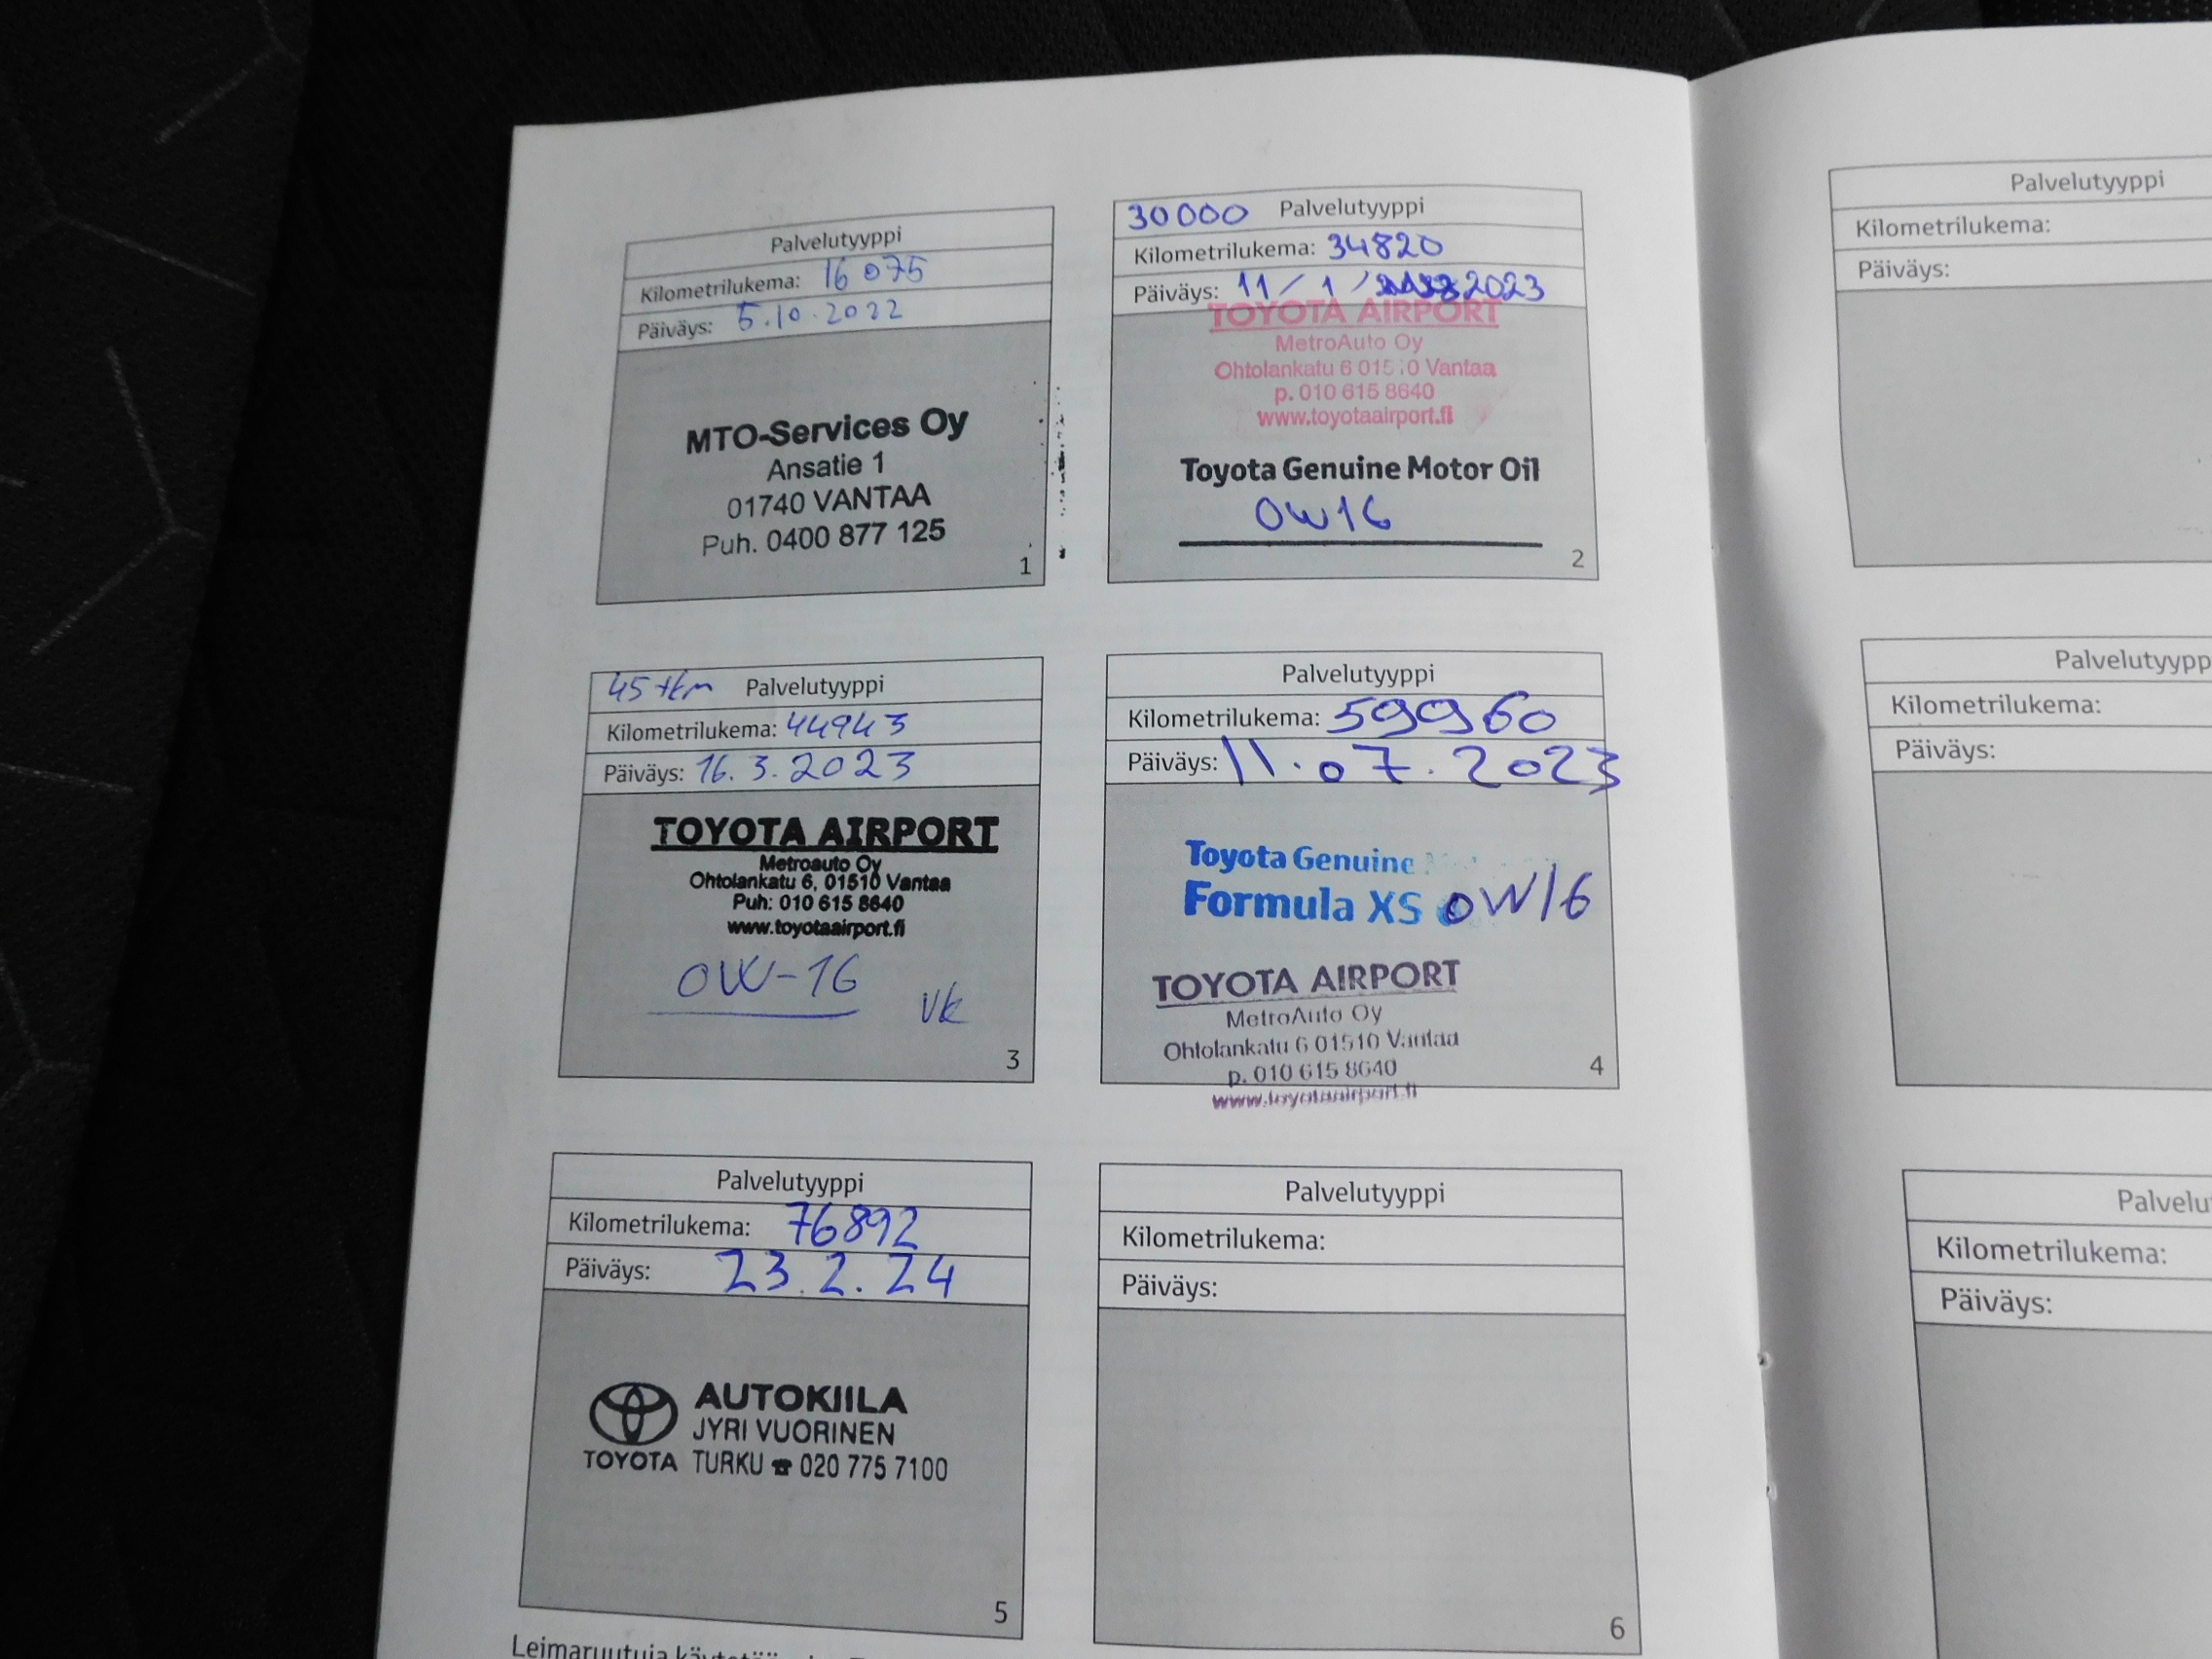 Palvelutyyppi
Kilometrilukema: 16 075
Päiväys: 5.10.2022
MTO-Services Oy
Ansatie 1
01740 VANTAA
Puh. 0400 877 125
1
30000 Palvelutyyppi
Kilometrilukema: 34820
Päiväys: 11/1/ 2023
TOYOTA AIRPORT
MetroAuto Oy
Ohtolankatu 6 Vantaa
p. 010 615 8640
www.toyotaairport.fi
Toyota Genuine Motor Oil
0W16
2
45 tkm Palvelutyyppi
Kilometrilukema: 44943
Päiväys: 16.3.2023
TOYOTA AIRPORT
Metroauto Oy
Ohtolankatu 6, 01510 Vantaa
Puh: 010 615 8640
www.toyotaairport.fi
0W-16
VK
3
Palvelutyyppi
Kilometrilukema: 59960
Päiväys: 11.07.2023
Toyota Genuine
Formula XS 0W16
TOYOTA AIRPORT
MetroAuto Oy
Ohtolankatu 6 01510 Vantaa
p. 010 615 8640
www.toyotaairport.fi
4
Palvelutyyppi
Kilometrilukema: 76892
Päiväys: 23.2.24
AUTOKIILA
JYRI VUORINEN
TOYOTA TURKU ☎ 020 775 7100
5
Palvelutyyppi
Kilometrilukema:
Päiväys:
6
Leimaruutuja
Palvelutyyppi
Kilometrilukema:
Päiväys:
Palvelutyypp
Kilometrilukema:
Päiväys:
Palvelu
Kilometrilukema:
Päiväys: